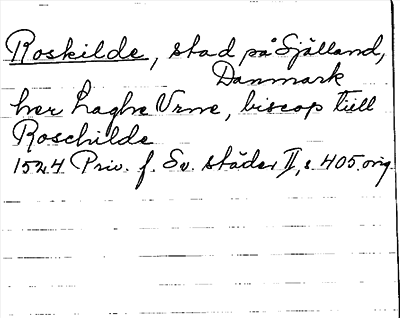 Roskilde, stad på Själland,
Danmark
her Laghe Vrne, biscop tiill
Roschilde
1524 Priv. f. Sv. städer II, s. 405. orig.